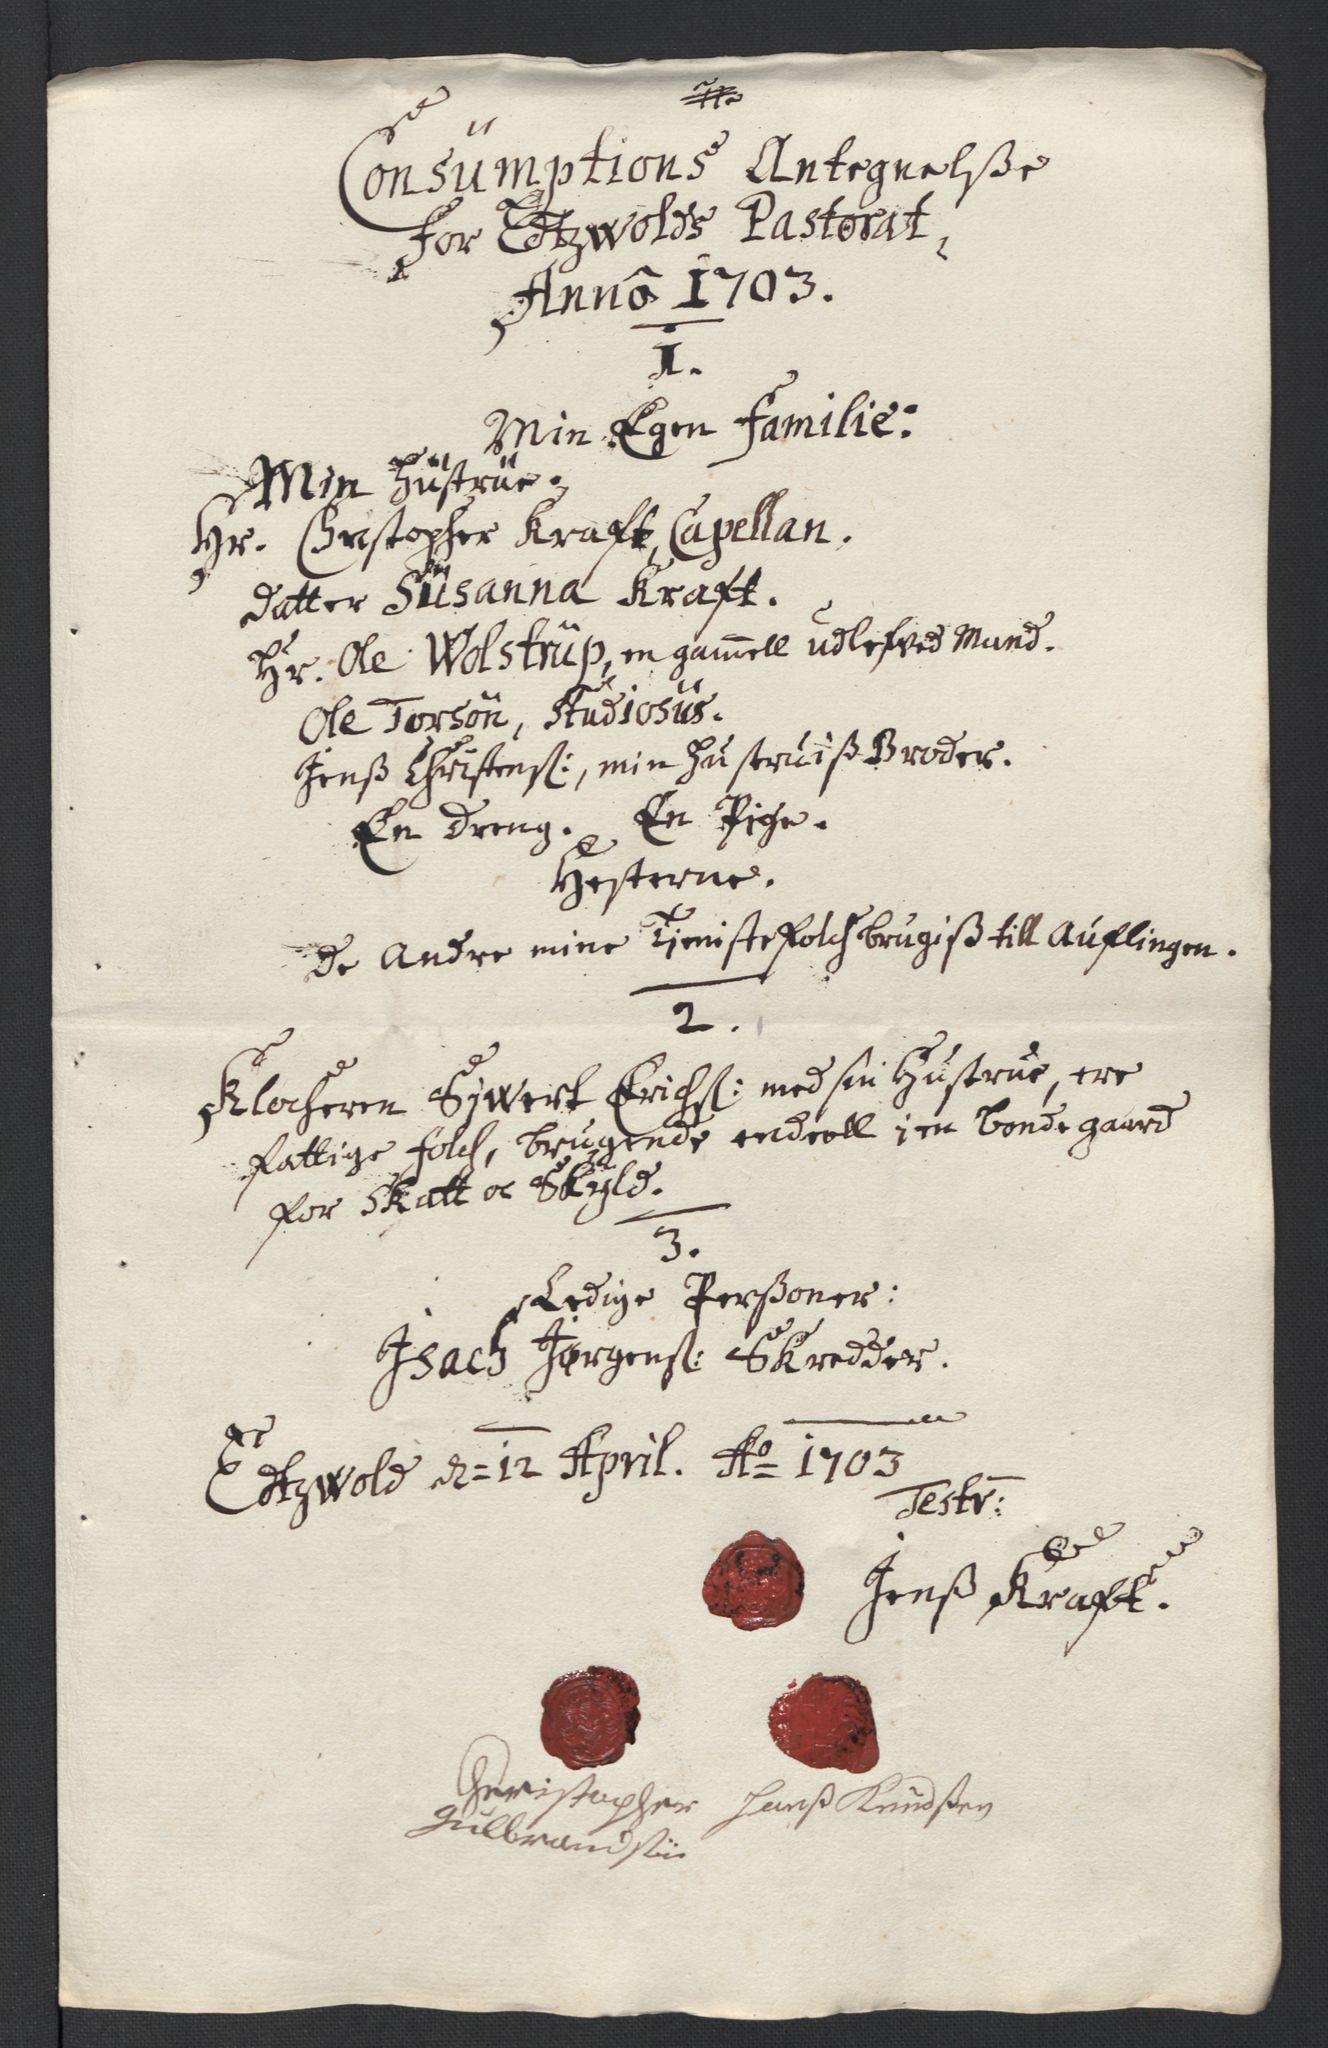 Consumptions Antegnelsße
for Edtzwolds Pastorat,
Anno 1703.
1.
Min Egen Familie:
Min Hustrue.
Hr. Christopher Kraft, Capellan.
Datter Susanna Kraft.
Hr. Ole Wolstrup, en gamell udlefved Mand.
Ole Torsøn, Studiosus.
Jenß Christenß:, min Hustruiß Broder.
En Dreng. En Pige.
Hesterne.
De Andre mine Tieniste folch brugiß till Auflingen.
2.
Klocheren Sywert Erichß: med sin Hustrue, ere
fattige folch, brugende endeell i en bondegaard
for Skatt oc Skyld.
3.
Ledige Perßoner:
Isach Jørgenß: Skredder.
Edtzwold d=12 April. Ao= 1703
Testr:
Jenß Kraft.
Christopher Hanß Knudßen
Gulbrandsøn